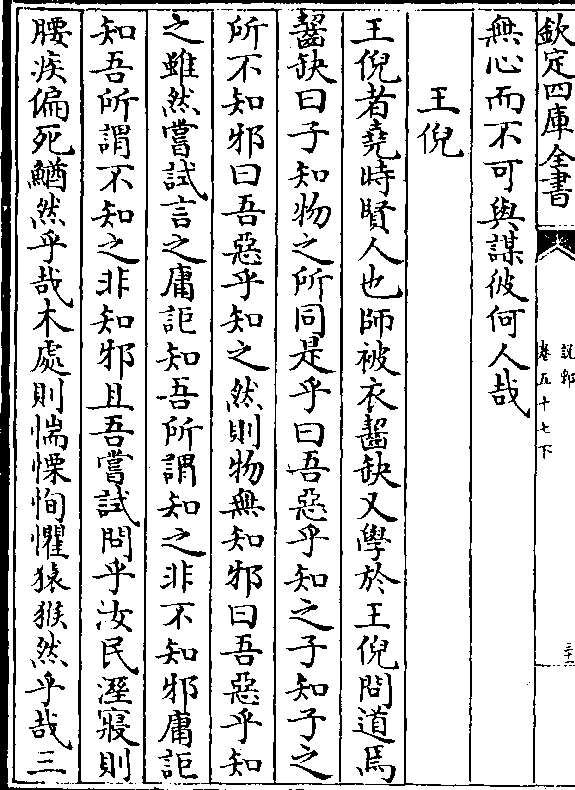 欽定四庫全書
說郛
卷五十七下
三十一
無心而不可與謀彼何人哉
王倪
王倪者堯時賢人也師被衣齧缺又學於王倪問道焉
齧缺曰子知物之所同是乎曰吾惡乎知之子知子之
所不知邪曰吾惡乎知之然則物無知邪曰吾惡乎知
之雖然嘗試言之庸詎知吾所謂知之非不知邪庸詎
知吾所謂不知之非知邪且吾嘗試問乎汝民溼寢則
腰疾偏死鰌然乎哉木處則惴慄恂懼猿猴然乎哉三